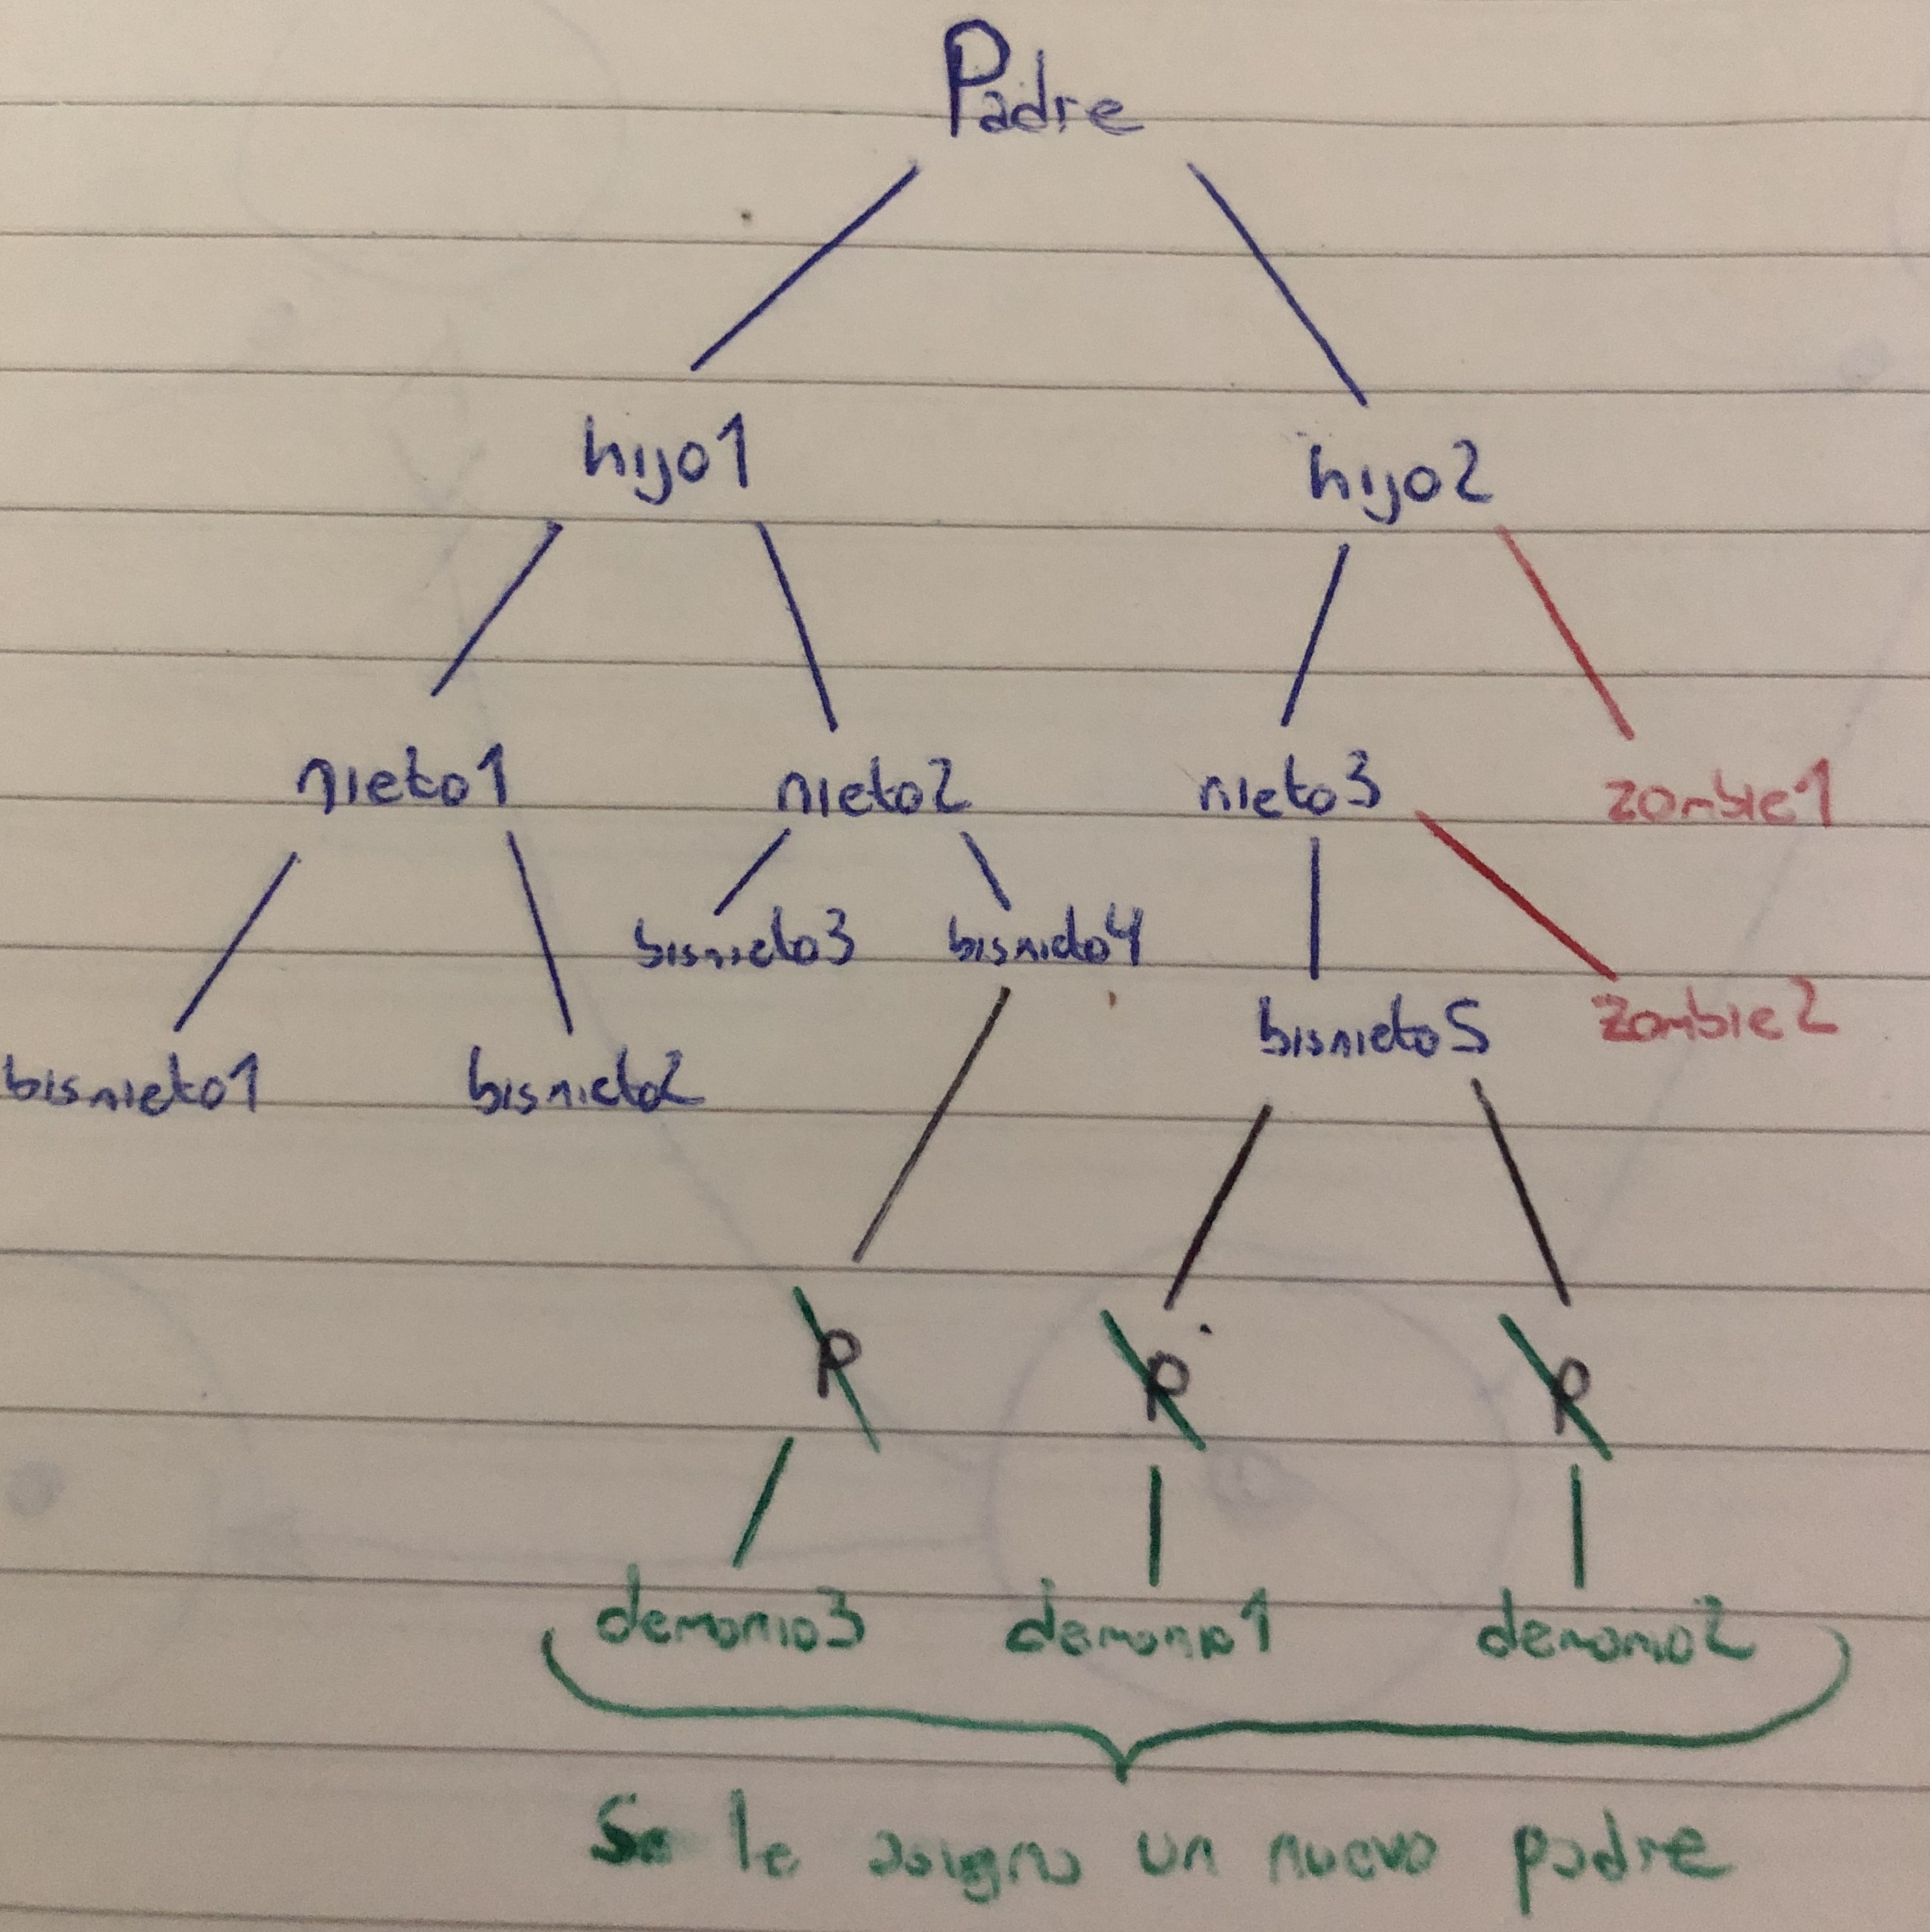 Padre
hijo1 hijo2
nieto1 nieto2 nieto3 zombie1
bisnieto3 bisnieto4 zombie2
bisnieto5
bisnieto1 bisnieto2
P P P
demonio3 demonio1 demonio2
Se le asigna un nuevo padre